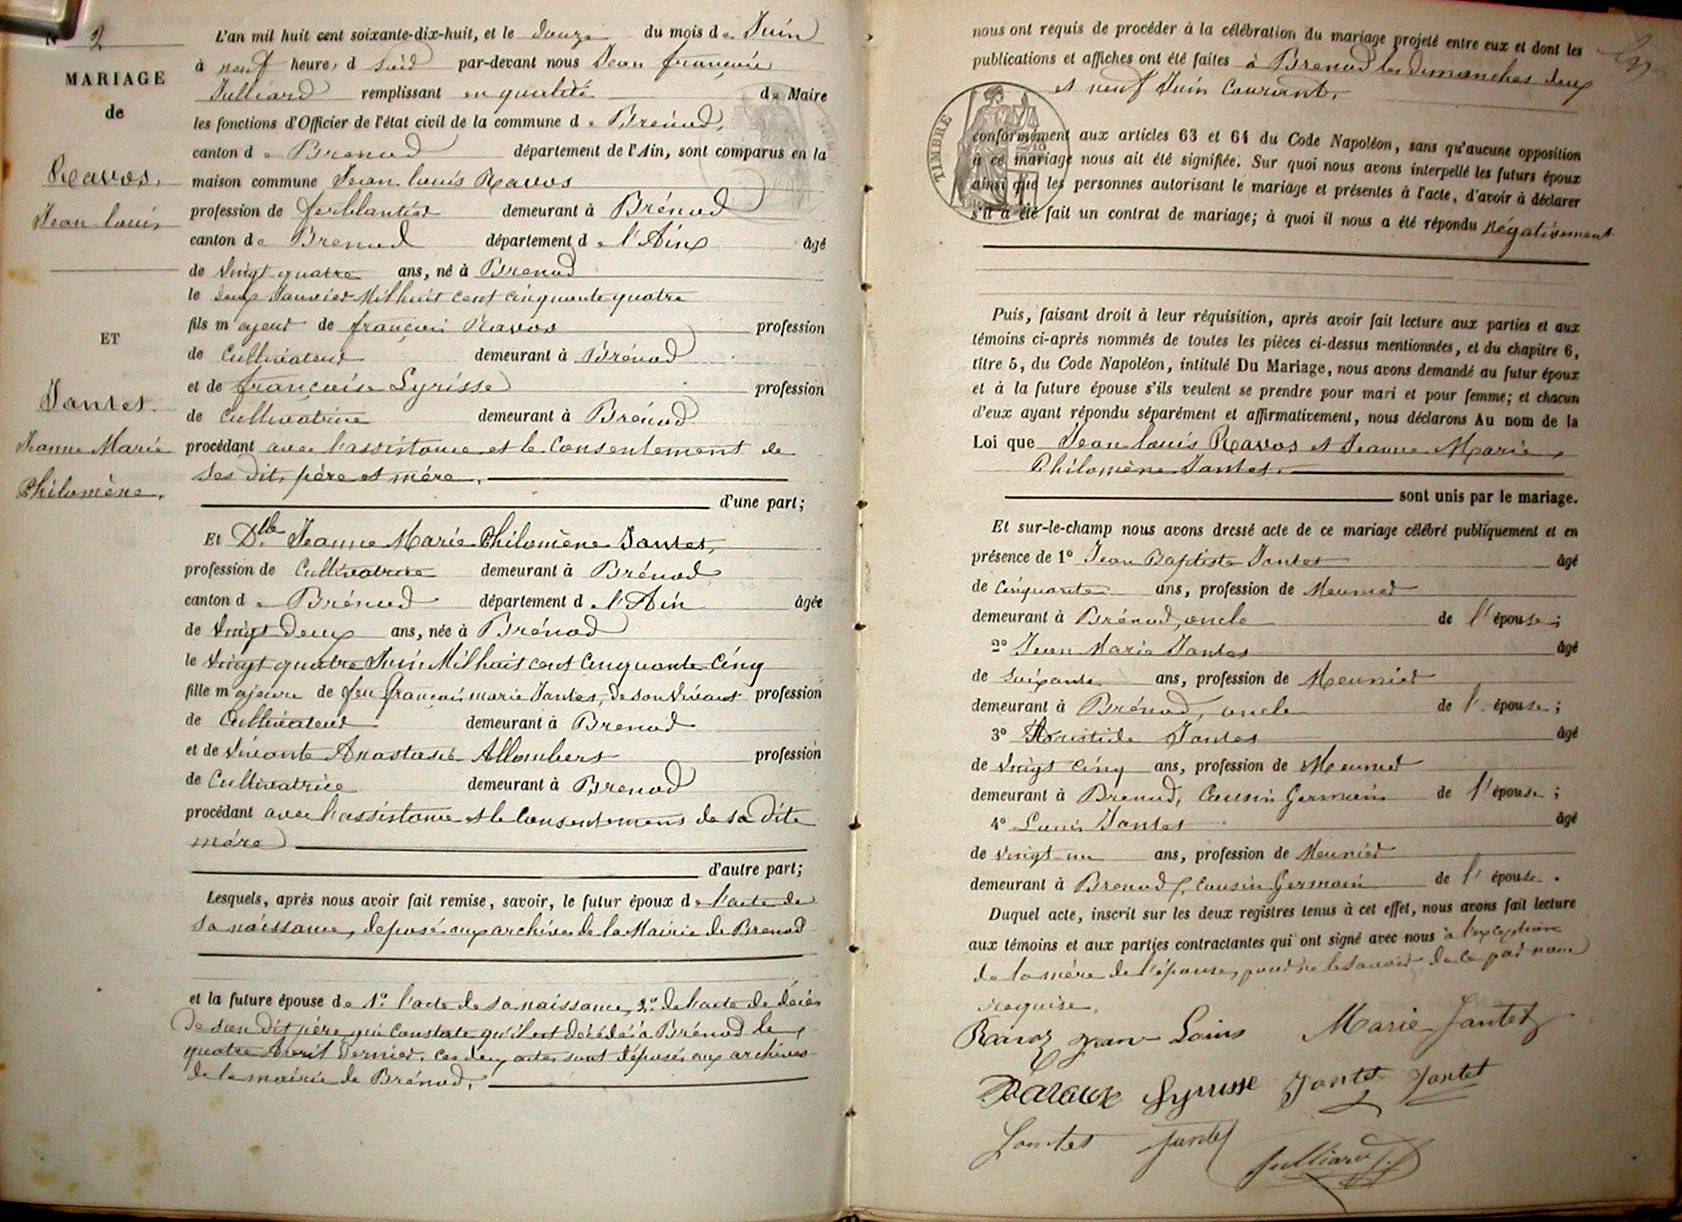 N° 2
MARIAGE
de
Ravos,
Jean Louis
ET
Jantet
Jeanne Marie
Philomène.
L'an mil huit cent soixante-dix-huit, et le douze du mois de Juin
à neuf heures d soir par-devant nous Jean françois
Julliard remplissant en qualité de Maire
les fonctions d'Officier de l'état civil de la commune de Brénod,
canton de Brenod département de l'Ain, sont comparus en la
maison commune Jean Louis Ravos
profession de ferblantier demeurant à Brénod
canton de Brenod département de l'Ain âgé
de vingt quatre ans, né à Brenod
le deux Janvier Mil huit cent cinquante quatre
fils majeur de françois Ravos profession
de Cultivateur demeurant à Brénod
et de françoise Syrisse profession
de Cultivatrice demeurant à Brénod
procédant avec l'assistance et le Consentement de
ses dits père et mère.
d'une part;
Et Dlle Jeanne Marie Philomène Jantet,
profession de Cultivatrice demeurant à Brénod
canton de Brénod département de l'Ain âgée
de vingt deux ans, née à Brénod
le vingt quatre Juin Mil huit cent cinquante cinq
fille majeure de feu françois marie Jantet, de son vivant profession
de Cultivateur demeurant à Brenod
et de vivante Anastasie Allombert profession
de Cultivatrice demeurant à Brenod
procédant avec l'assistance et le Consentement de sa dite
mère
d'autre part;
Lesquels, après nous avoir fait remise, savoir, le futur époux de l'acte de
sa naissance, déposé aux archives de la Mairie de Brenod
et la future épouse de 1° l'acte de sa naissance, 2° de l'acte de décès
de son dit père qui constate qu'il est décédé à Brénod le
quatre Avril dernier. ces deux actes sont déposés aux archives
de la mairie de Brénod.
nous ont requis de procéder à la célébration du mariage projeté entre eux et dont les
publications et affiches ont été faites à Brenod les dimanches deux
et neuf Juin Courant,
TIMBRE
conformément aux articles 63 et 64 du Code Napoléon, sans qu'aucune opposition
à ce mariage nous ait été signifiée. Sur quoi nous avons interpellé les futurs époux
ainsi que les personnes autorisant le mariage et présentes à l'acte, d'avoir à déclarer
s'il a été fait un contrat de mariage; à quoi il nous a été répondu négativement
Puis, faisant droit à leur réquisition, après avoir fait lecture aux parties et aux
témoins ci-après nommés de toutes les pièces ci-dessus mentionnées, et du chapitre 6,
titre 5, du Code Napoléon, intitulé Du Mariage, nous avons demandé au futur époux
et à la future épouse s'ils veulent se prendre pour mari et pour femme; et chacun
d'eux ayant répondu séparément et affirmativement, nous déclarons Au nom de la
Loi que Jean Louis Ravos et Jeanne Marie
Philomène Jantet.
sont unis par le mariage.
Et sur-le-champ nous avons dressé acte de ce mariage célébré publiquement et en
présence de 1° Jean Baptiste Jantet âgé
de Cinquante ans, profession de Meunier
demeurant à Brénod, oncle de l'épouse;
2° Jean Marie Jantet âgé
de soixante ans, profession de Meunier
demeurant à Brénod, oncle de l'épouse;
3° Aristide Jantet âgé
de vingt cinq ans, profession de Meunier
demeurant à Brenod, Cousin Germain de l'épouse;
4° Louis Jantet âgé
de vingt un ans, profession de Meunier
demeurant à Brenod, cousin Germain de l'épouse.
Duquel acte, inscrit sur les deux registres tenus à cet effet, nous avons fait lecture
aux témoins et aux parties contractantes qui ont signé avec nous à l'exception
de la mère de l'épouse, pour ne le savoir de ce par nous
requise.
Ravoz Jean Louis Marie Jantet
Syrisse Jantet Jantet
Jantet Jantet Julliard